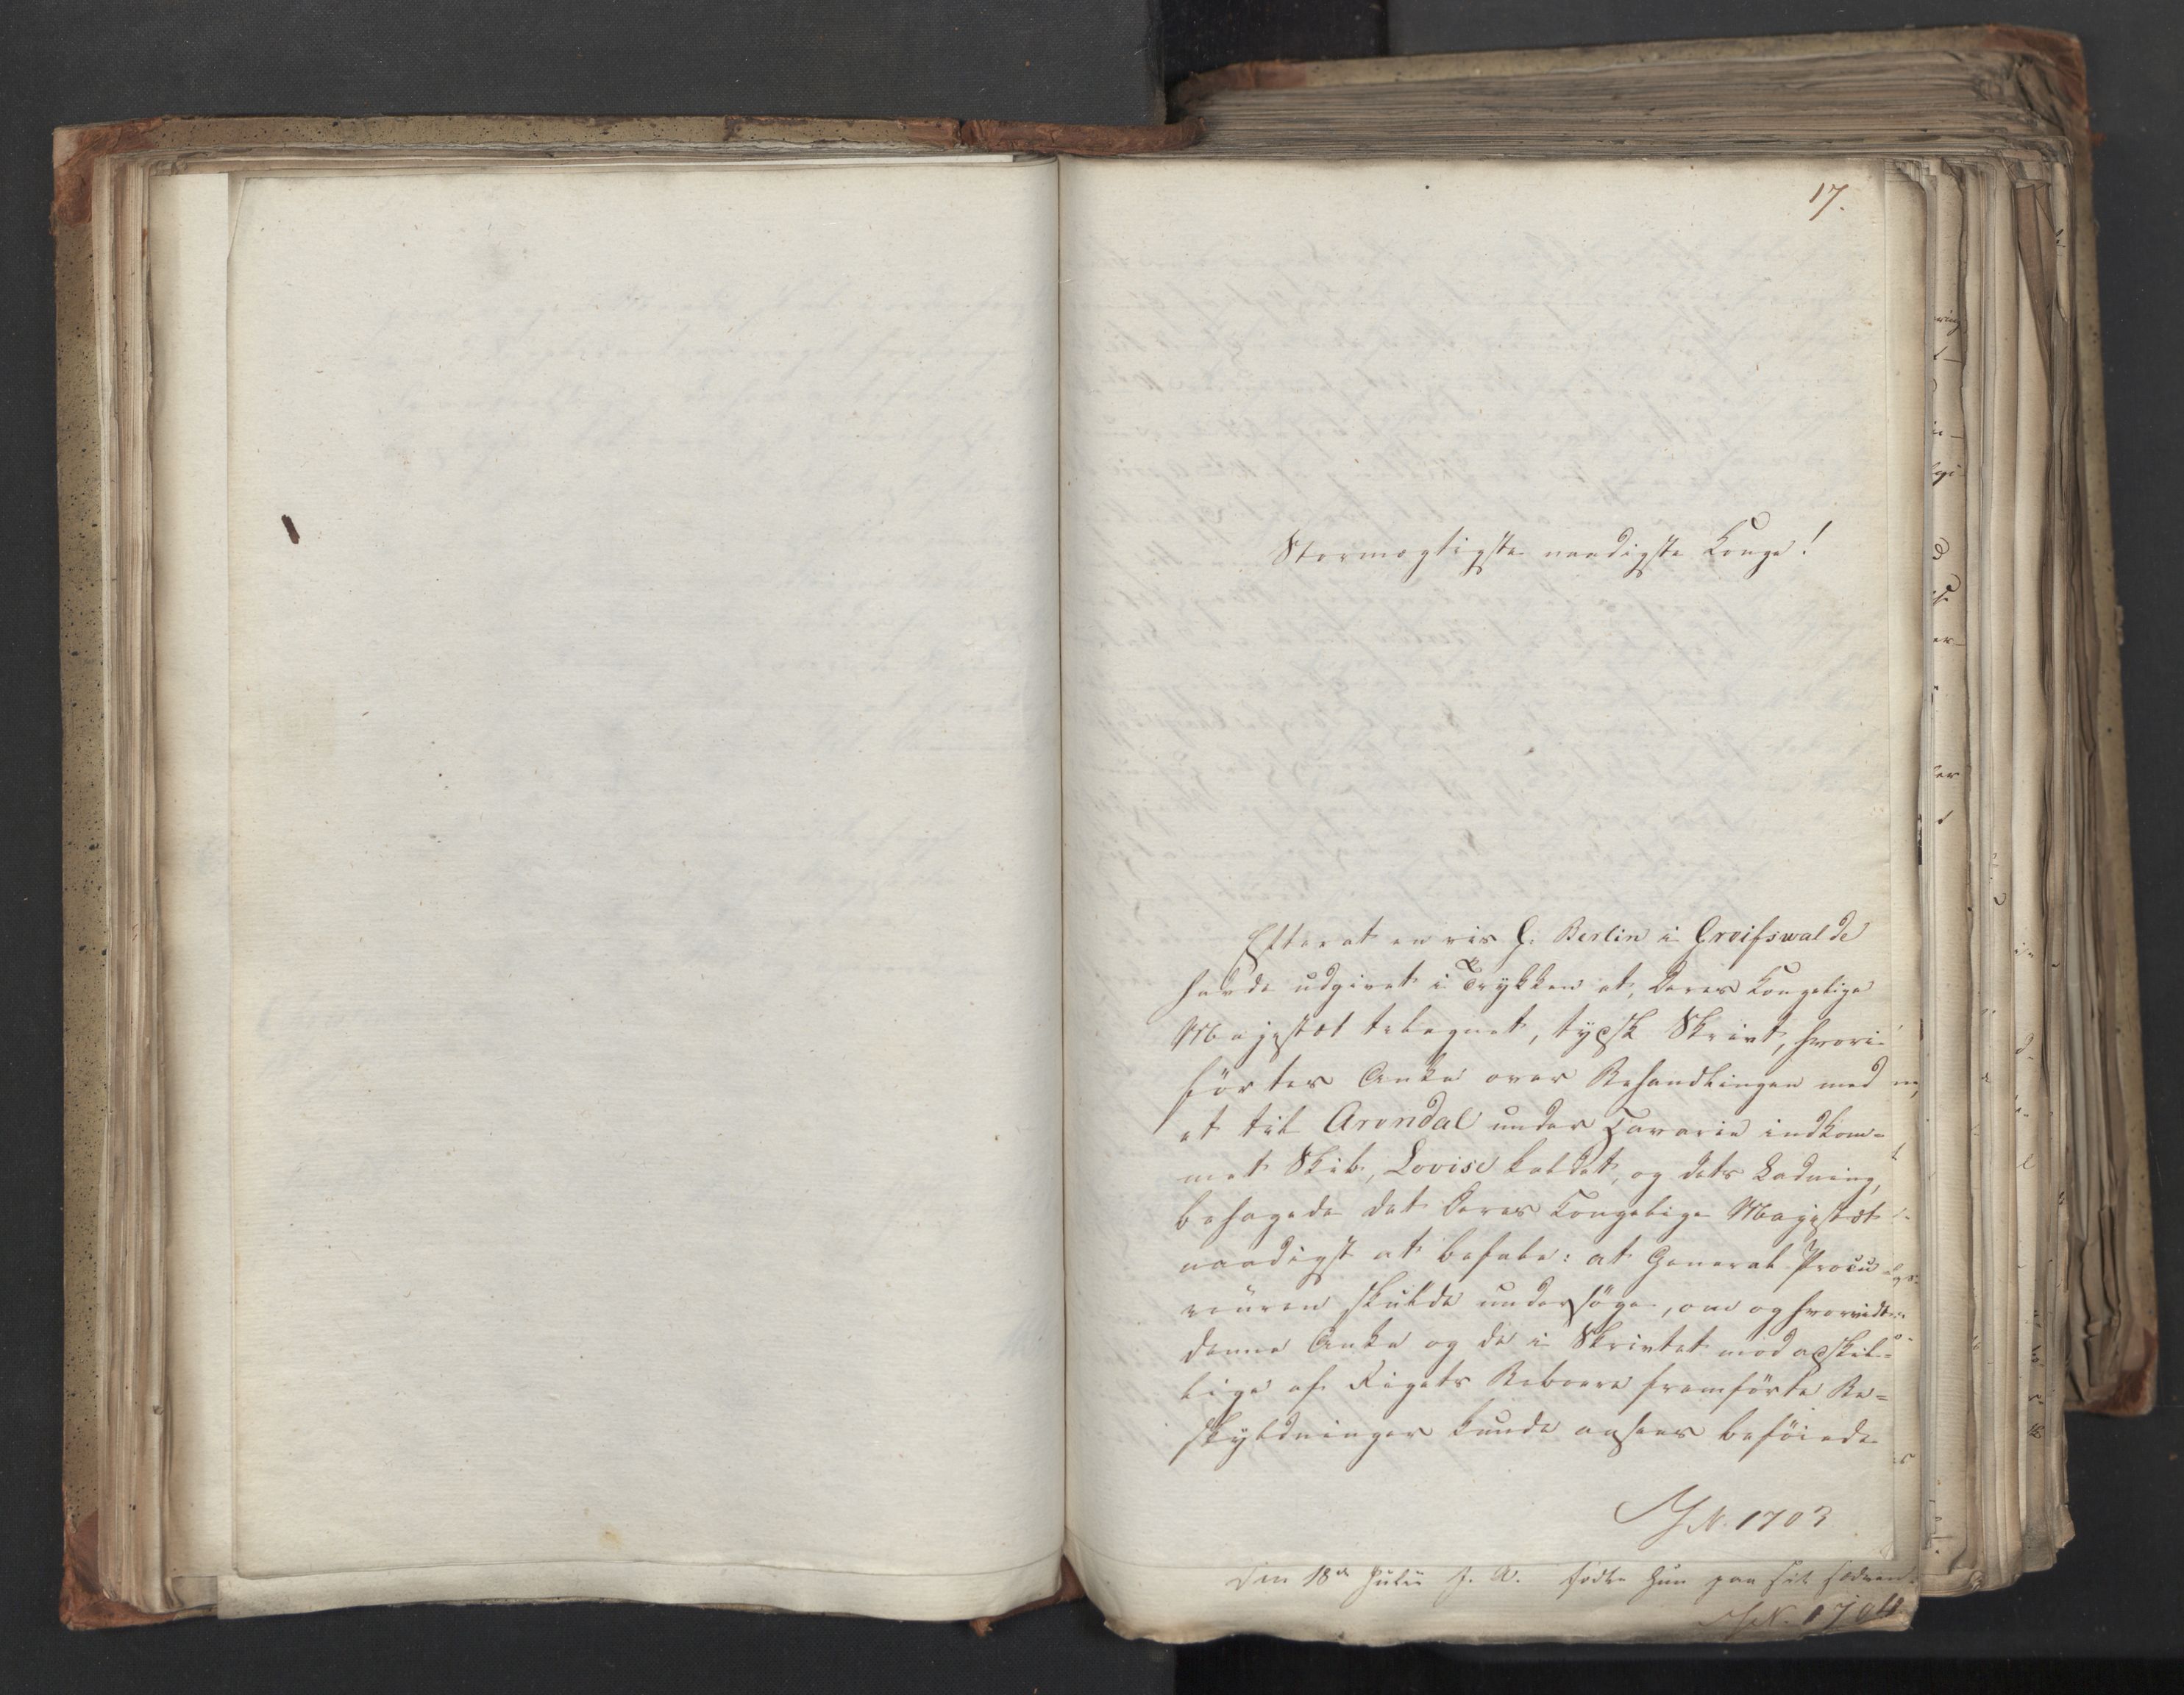 17.
Stormægtigste naadigste Konge!
Efterat en vis C. Berlin i Greifswalde
havde udgivet i Trykken et, Deres Kongelige
Majestæt tilegnet, tydsk Skrivt, hvori
förtes Anke over Behandlingen med
et til Arendal under Havarie indkom-
met Skib, Lovise kaldet, og dets Ladning,
behagede det Deres Kongelige Majestæt
naadigst at befale: at General Procu-
reuren skulde undersöge, om og hvorvidt
denne Anke og de i Skrivtet mod adskil-
lige af Rigets Beboere fremförte Be-
skyldninger kunde ansees beföiede
J.N. 1703
Den 18de Julii f. A. födte hun paa sit
J.N. 1704